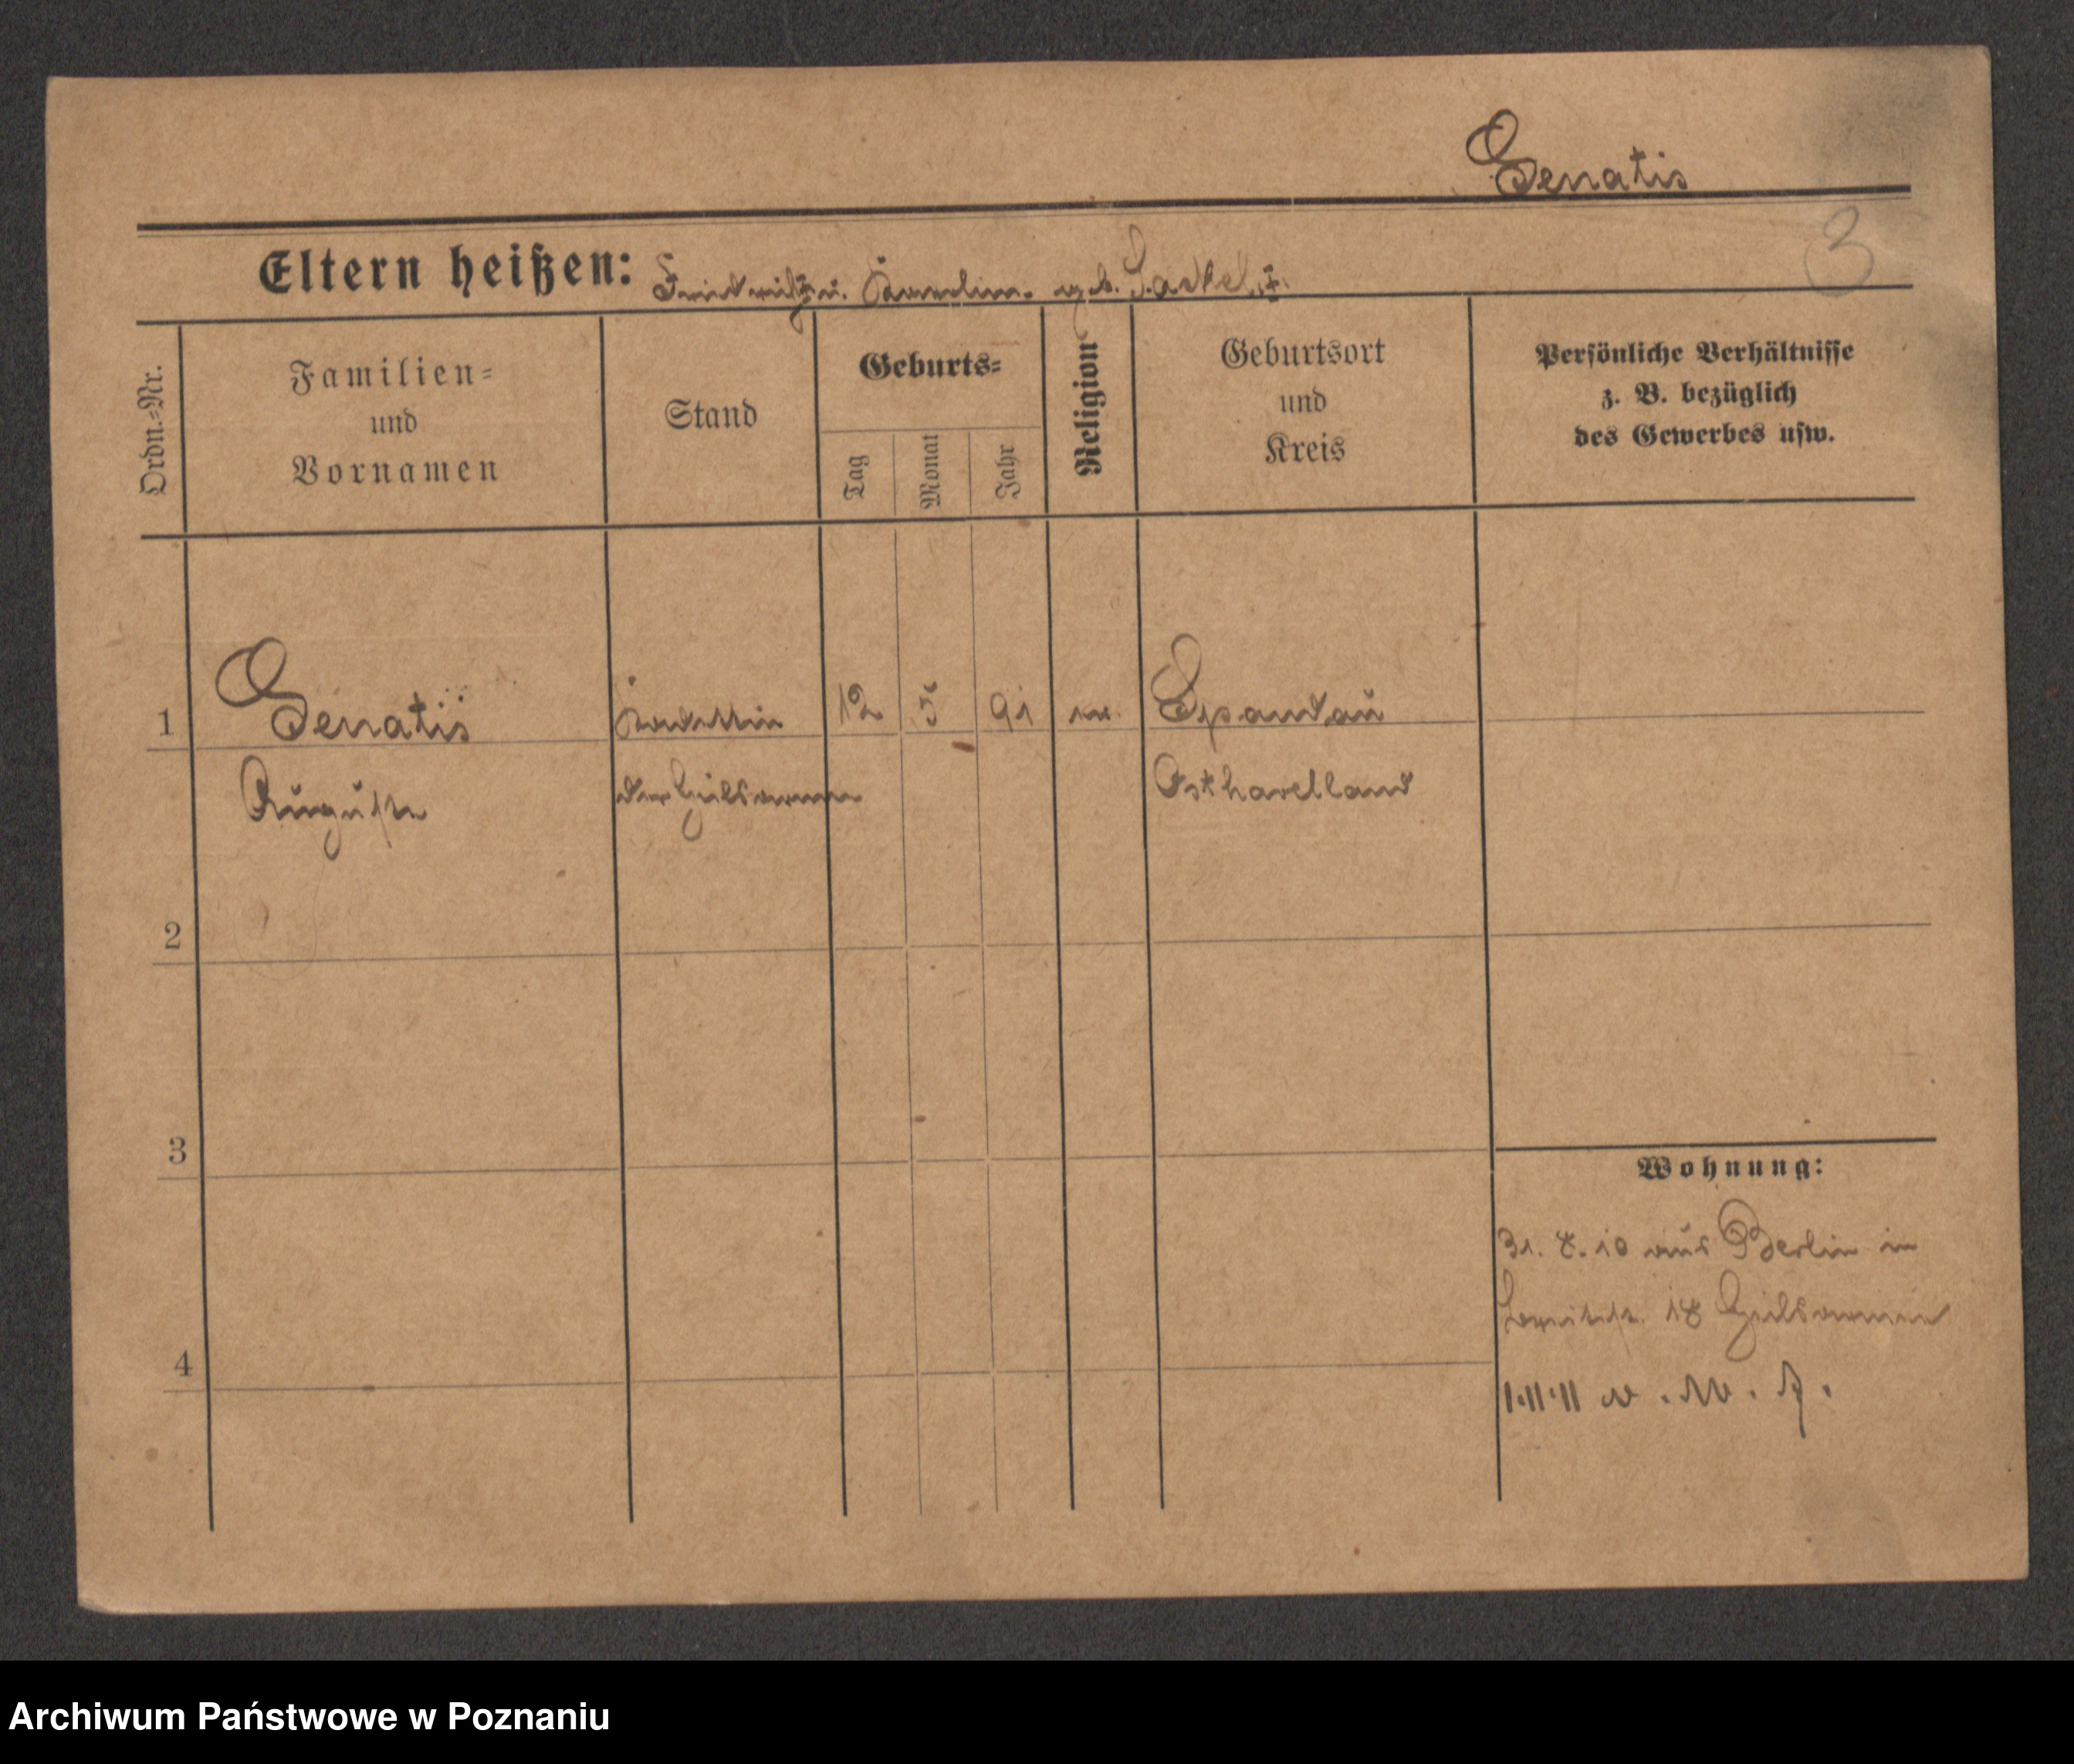 Genatis
3
Eltern heißen: Friedrich u. Karolin. geb.
Ordn.=Nr.
Familien=
und
Vornamen
Stand
Geburts=
Tag
Monat
Jahr
Religion
Geburtsort
und
Kreis
Persönliche Verhältnisse
z. B. bezüglich
des Gewerbes usw.
1
Genatis 12 5 91 ev. Spandau
Auguste Osthavelland
2
3
4
Wohnung:
31. 8. 10 aus Berlin in
18
1.11.11 n. W.
Archiwum Państwowe w Poznaniu